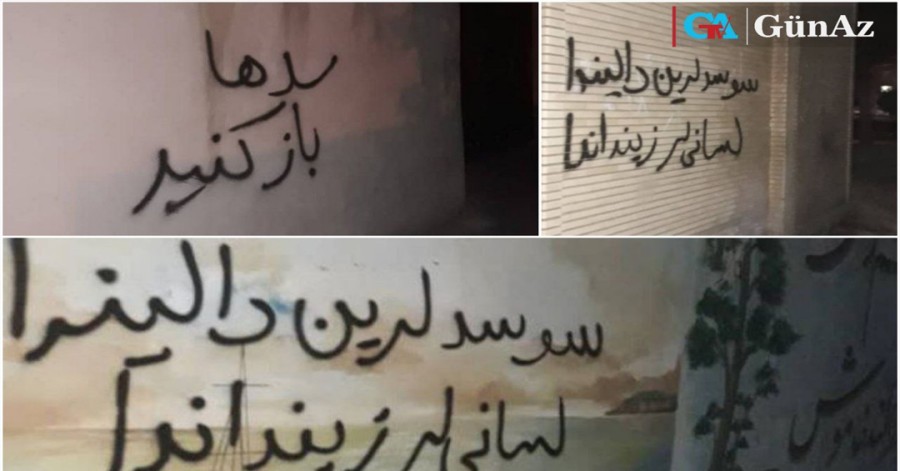 سدها
باز کنید
GünAz
سو سدلرین دالیندا
لسانی لر زینداندا
سو سدلرین دالیندا
لسانی لر زینداندا